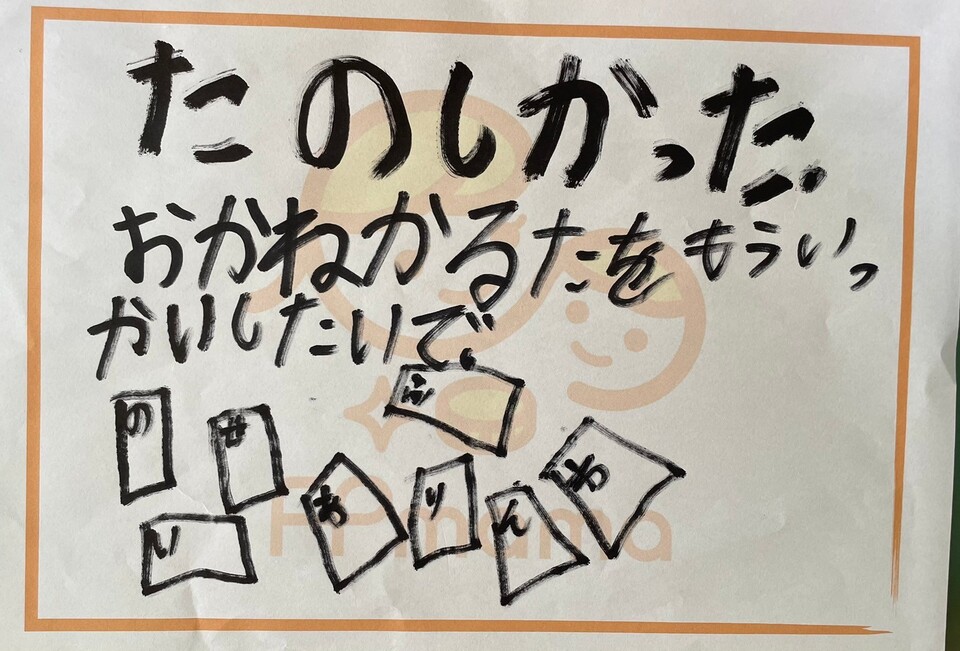 たのしかった。
おかねかるたをもういっ
かいしたいで
の
せ
い
お
り
ん
FPmama